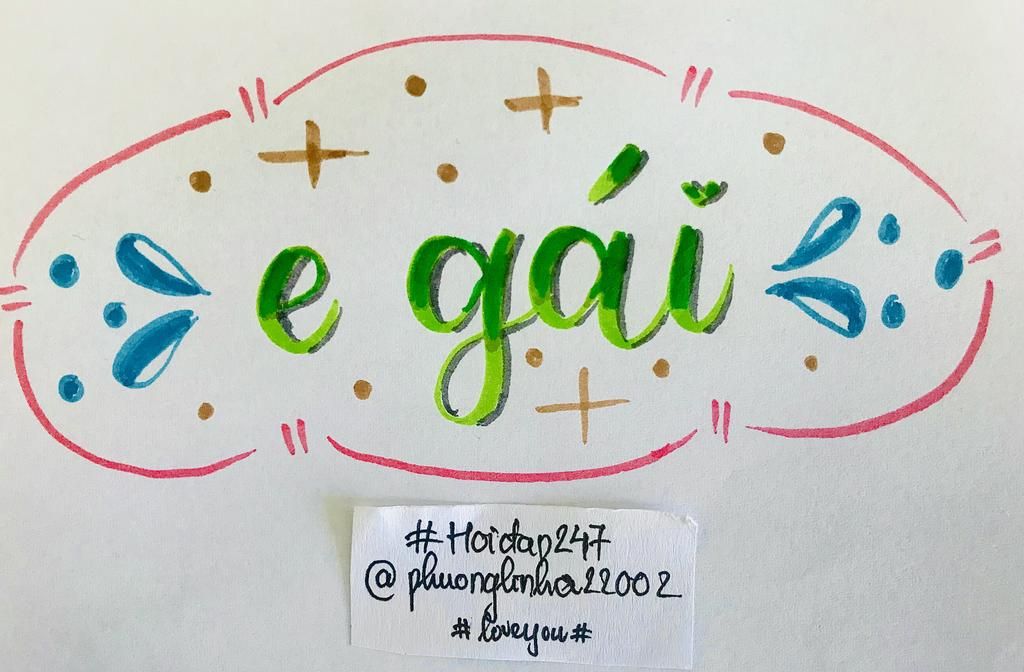 e gái
#Hoidap247
@phuonglinha22002
#loveyou#